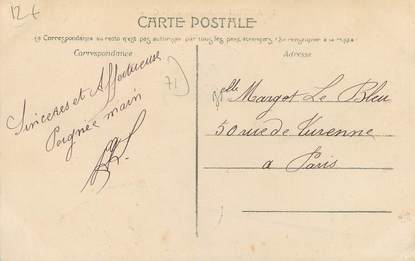 12 €
CARTE POSTALE
(La Correspondance au recto n'est pas autorisée par tous les pays étrangers (Se renseigner à la poste)
Correspondance
Adresse
71
Sincères et Affectueuse
Poignée main
Melle Margot Le Bleu
50 rue de Varenne
a Paris